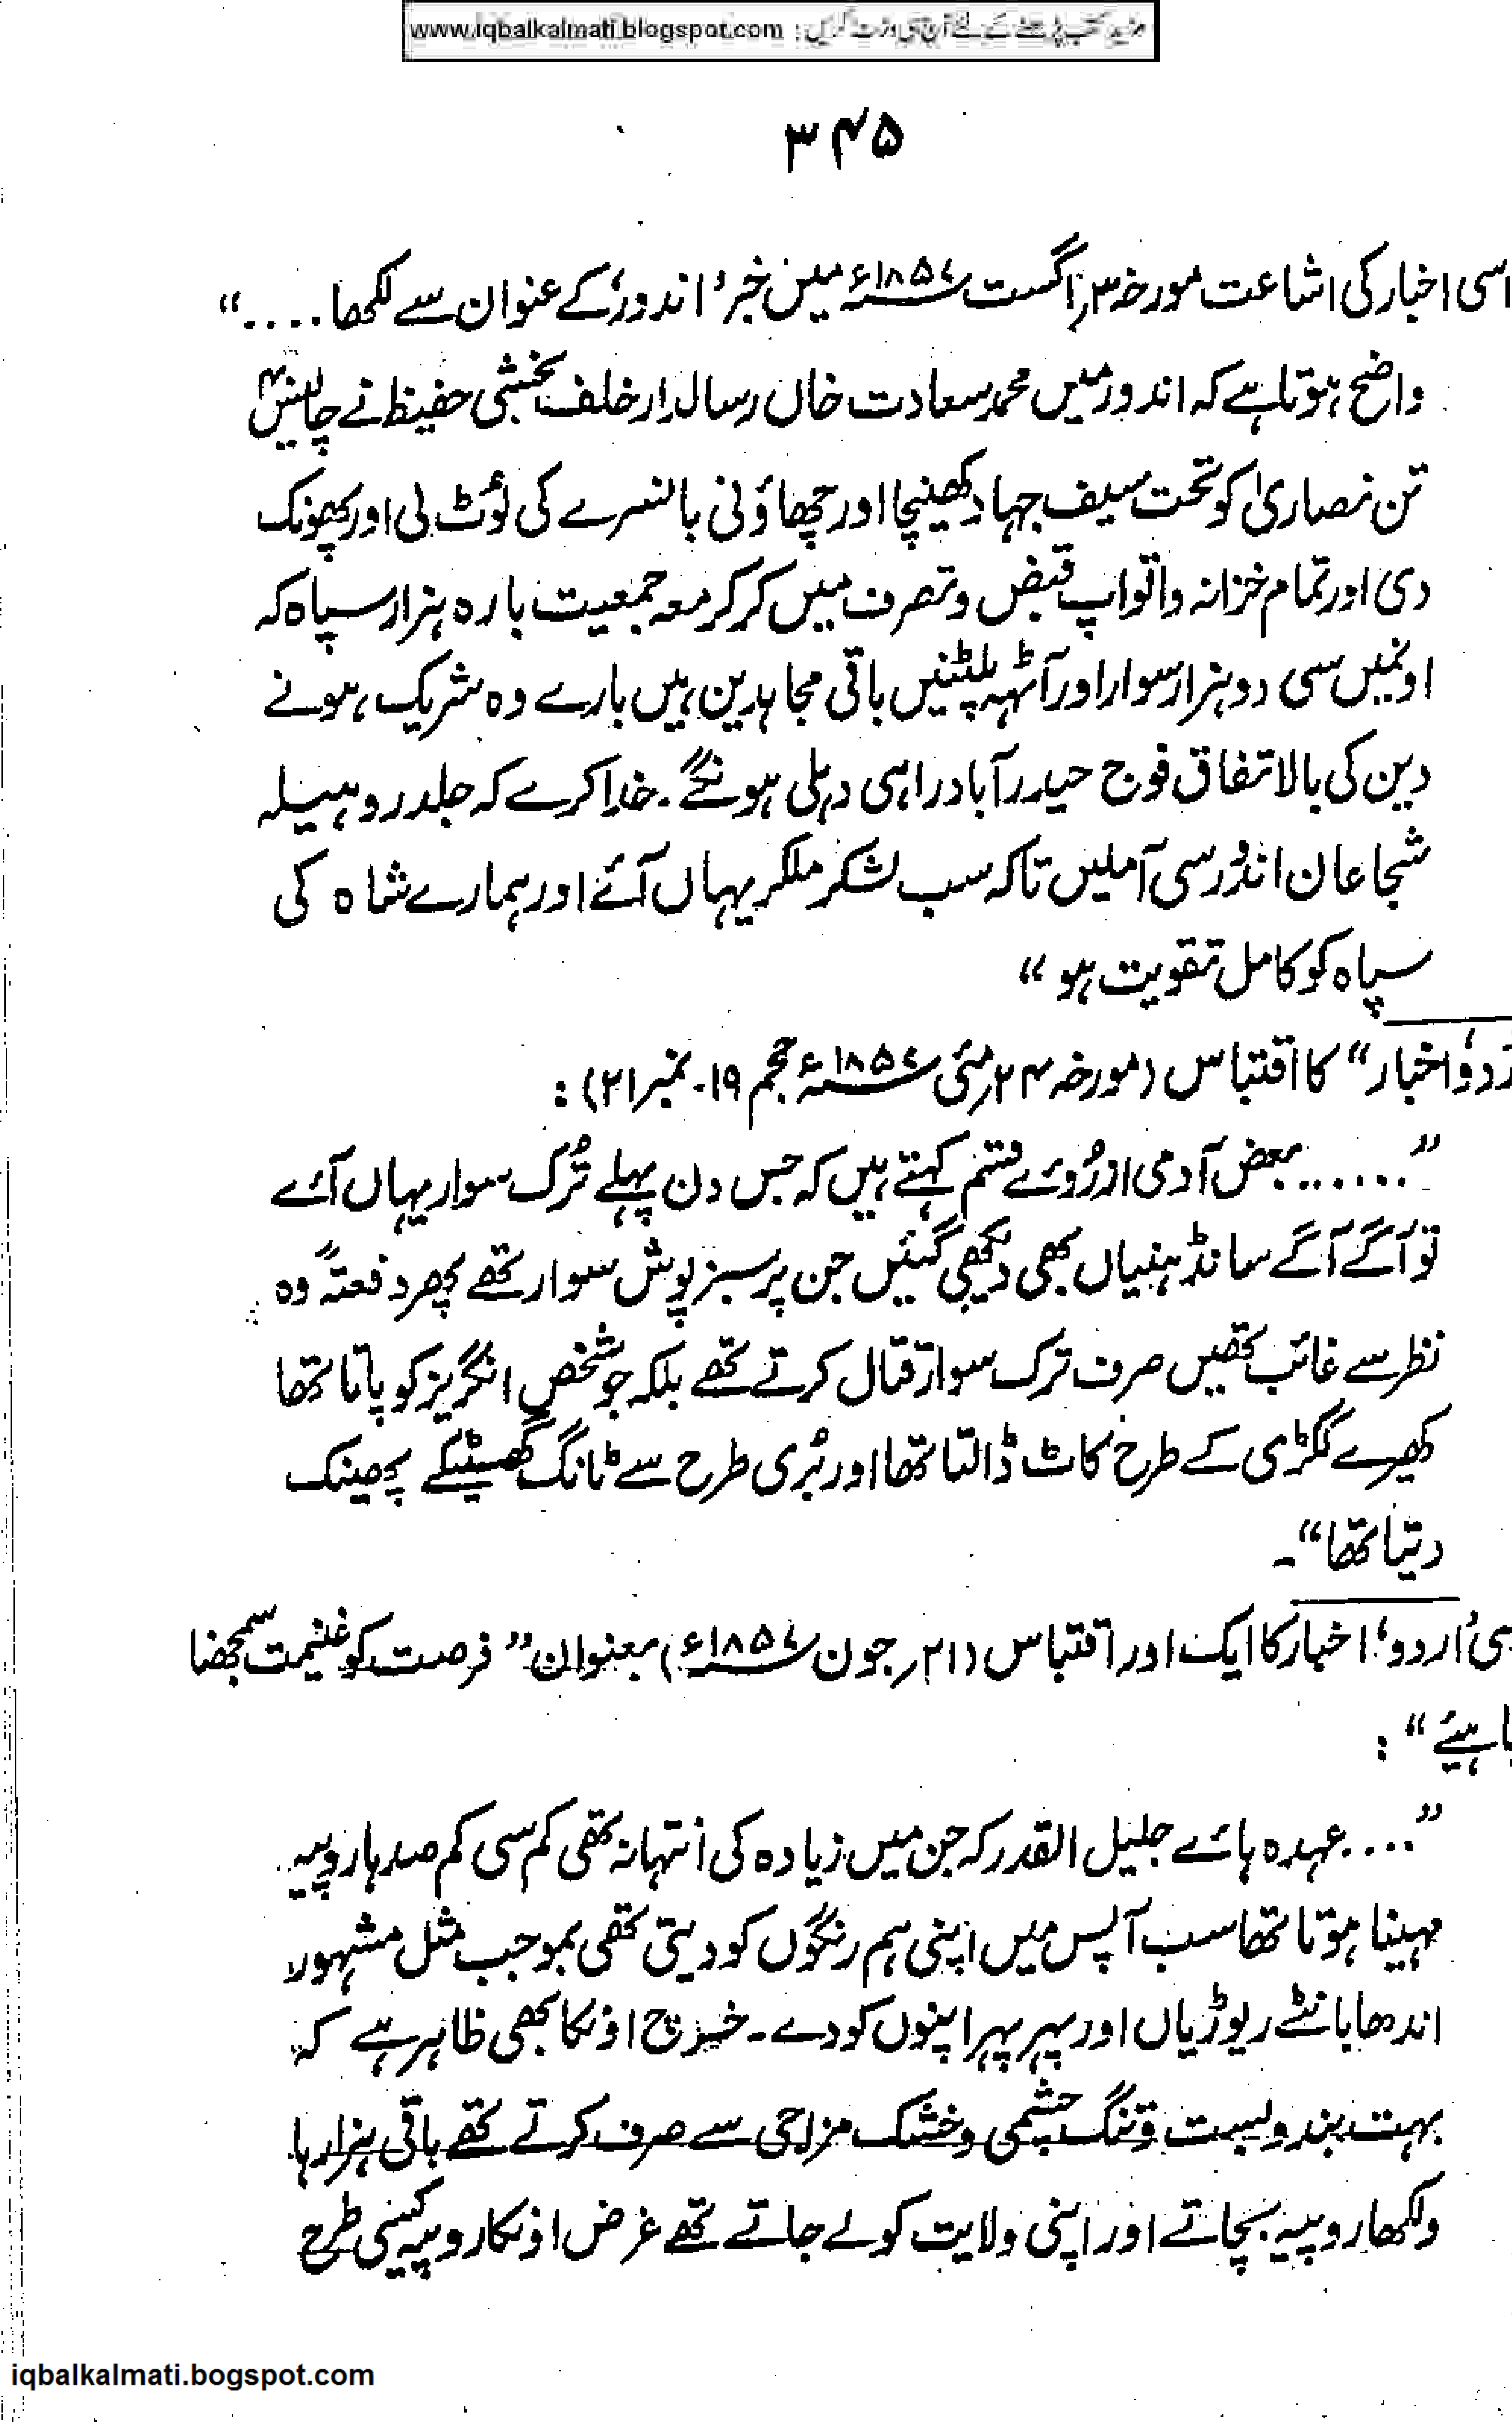 مزید کتب پڑھنے کے لئے آج ہی وزٹ کریں : www.iqbalkalmati.blogspot.com
۳۴۵
اسی اخبار کی اشاعت مورخہ ۳؍اگست ۱۸۵۷ء میں خبر ’اندور‘ کے عنوان سے لکھا . . . . “
واضح ہوتا ہے کہ اندور میں محمد سعادت خاں رسالدار خلف بخشی حفیظ نے چالیس
تن نصاریٰ کو تحت سیف جہاد کھینچا اور چھاؤنی بالسرے کی لُوٹ لی اور پھونک
دی اور تمام خزانہ و اتواپ قبض و تصرف میں کر کر معہ جمعیت بارہ ہزار سپاہ کہ
اونمیں سی دو ہزار سوار اور آٹہہ پلٹنیں باقی مجاہدین ہیں بارے وہ شریک ہونے
دین کی بالاتفاق فوج حیدرآباد راہی دہلی ہونگے۔ خدا کرے کہ جلد روہیلہ
شجاعان اندور سی آملیں تاکہ سب لشکر ملکر یہاں آئے اور ہمارے شاہ کی
سپاہ کو کامل تقویت ہو “
ردو اخبار “ کا اقتباس (مورخہ ۲۴؍مئی ۱۸۵۷ء حجم ۱۹۔ نمبر ۲۱) :
” . . . . . . بعض آدمی از رُوئے قسم کہتے ہیں کہ جس دن پہلے تُرک سوار یہاں آئے
تو آگے آگے سانڈہنیاں بھی دیکھی گئیں جن پر سبز پوش سوار تھے پھر دفعتہً وہ
نظر سے غائب تھیں صرف ترک سوار قتال کرتے تھے بلکہ جو شخص انگریز کو پاتا تھا
کھیرے ککڑی کے طرح کاٹ ڈالتا تھا اور بُری طرح سے ٹانگ گھسیٹکے پھینک
دیتا تھا “۔
سی ’اردو‘ اخبار کا ایک اور اقتباس (۲۱؍ جون ۱۸۵۷ء) بعنوان ” فرصت کو غنیمت سمجھنا
اہیئے “ :
” . . . . عہدہ ہائے جلیل القدر کہ جن میں زیادہ کی انتہا نہ تھی کم سی کم صدہا روپیہ
مہینا ہوتا تھا سب آپس میں اپنی ہم رنگوں کو دیتی تھی بموجب مثل مشہور
اندھا بانٹے ریوڑیاں اور پہر پہر اپنوں کو دے۔ خرچ اونکا بھی ظاہر ہے کہ
بہت بندوبست و تنگ چشمی و خشک مزاجی سے صرف کرتے تھے باقی ہزارہا
و لکھا روپیہ بچاتے اور اپنی ولایت کو لے جاتے تھے غرض اونکا روپیہ کیسی طرح
iqbalkalmati.bogspot.com